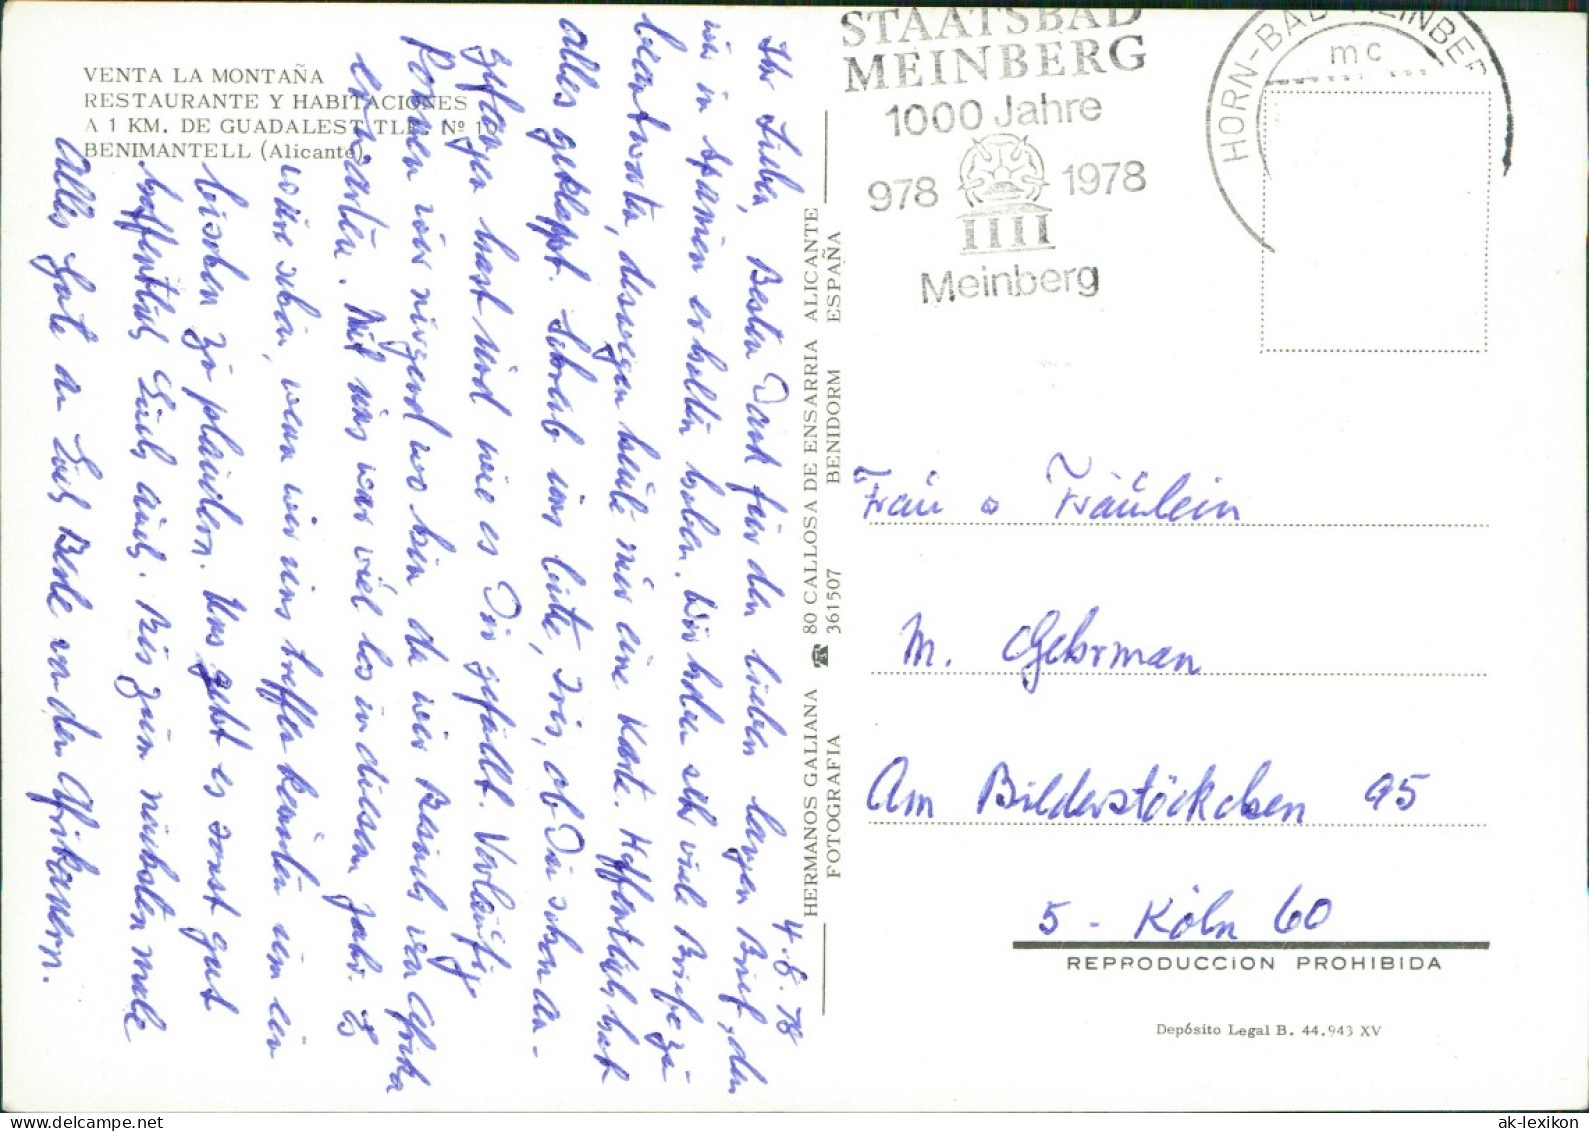 VENTA LA MONTAÑA
RESTAURANTE Y HABITACIONES
A 1 KM. DE GUADALEST TLF. Nº 10
BENIMANTELL (Alicante)
4.8.78
Ihr Lieben, Besten Dank für den lieben langen Brief, den
wir in Spanien erhalten haben. Wir haben sehr viele Briefe zu
beantworten, deswegen heute nur eine Karte. Hoffentlich hat
alles geklappt. Schreib uns bitte, Iris, ob Du schon an-
gefangen hast und wie es Dir gefällt. Vorläufig
können wir nirgend wo hin da wir Besuch von Afrika
erwarten. Mit uns war viel los in diesem Jahr. Es
wäre schön, wenn wir uns treffen könnten um ein
bisschen zu plaudern. Uns geht es sonst gut
hoffentlich Euch auch. Bis zum nächsten mal
Alles Gute an Euch Beide von den Afrikanern.
HERMANOS GALIANA ☎ 80 CALLOSA DE ENSARRIA ALICANTE
FOTOGRAFIA 361507 BENIDORM ESPAÑA
STAATSBAD
MEINBERG
1000 Jahre
978 1978
Meinberg
HORN-BAD MEINBERG
mc
Frau u Fräulein
M. Gehrman
Am Bilderstöckchen 95
5 - Köln 60
REPRODUCCION PROHIBIDA
Depósito Legal B. 44.943 XV
ak-lexikon